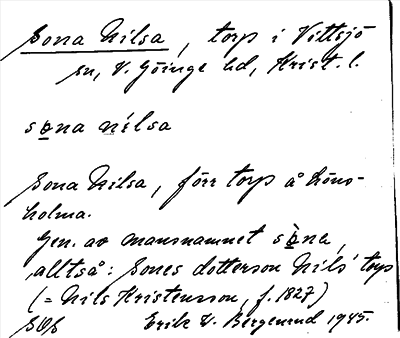 Sona Nilsa, torp i Vittsjö
sn, V. Göinge hd, Krist. l.
so̱na nílsa
Sona Nilsa, förr torp å Höns-
holma.
Gen. av mansnamnet sò̱na,
alltså: Sones dotterson Nils' torp
(= Nils Kristensson, f. 1827)
Erik W. Bergenrud 1945.